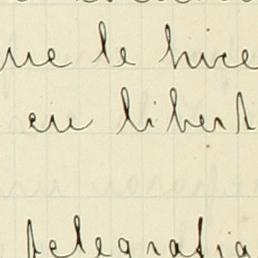 que le hice
en libert
telegrafia